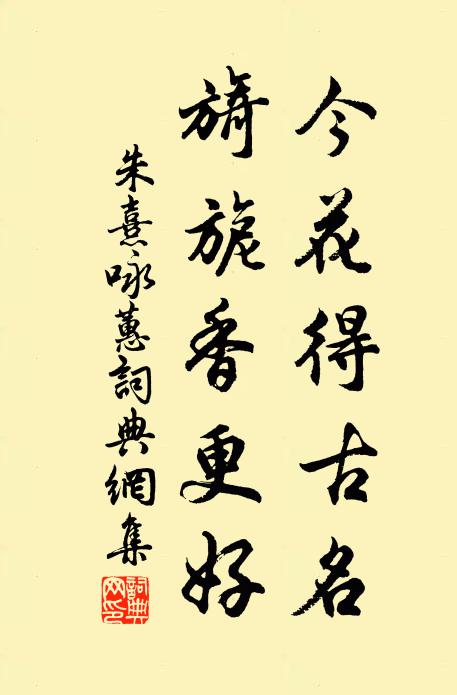 今花得古名
旖旎香更好
朱熹咏蕙詞典網集
詞典網印